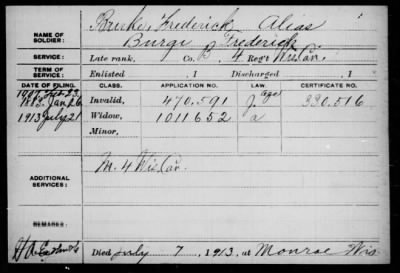 Burke, Frederick Alias
NAME OF SOLDIER: Burgi, Frederick
SERVICE: Late rank, Co. B, 4 Reg't Wis Cav.
TERM OF SERVICE: Enlisted , 1 Discharged , 1
DATE OF FILING. CLASS. APPLICATION NO. LAW. CERTIFICATE NO.
1907
1883, Jan 26 Invalid, 470.591 J. age 330.516
1913 July 21 Widow, 1011652 a
Minor,
ADDITIONAL SERVICES: M. 4 Wis Cav.
REMARKS:
Died July 7, 1913, at Monroe Wis